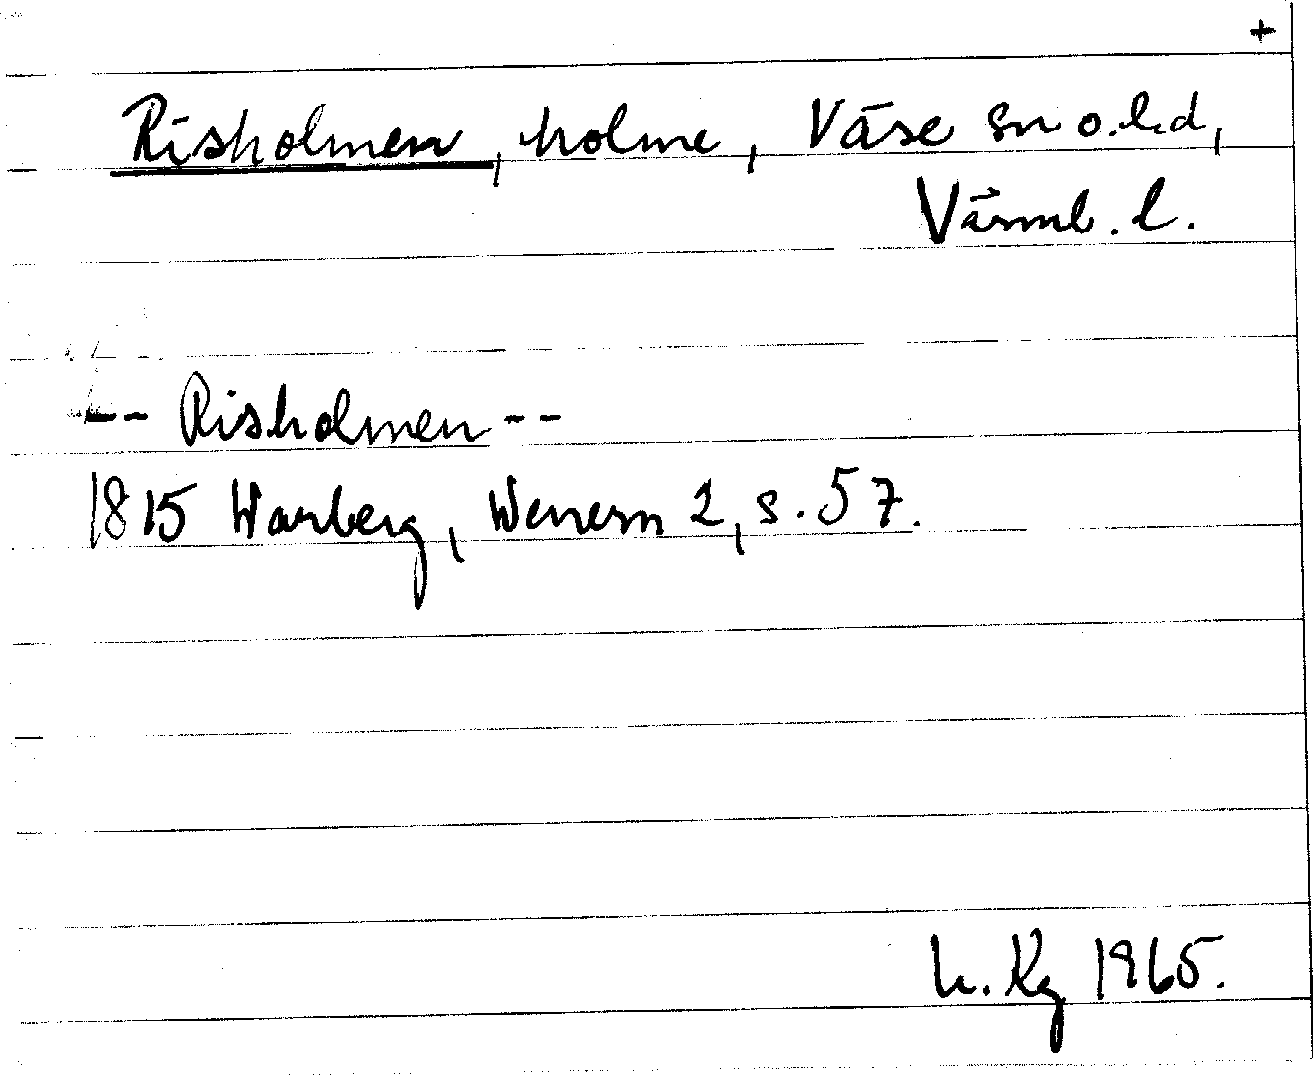 +
Risholmen, holme, Väse sn o. hd,
Värml. l.
-- Risholmen --
1815 Warberg, Wenern 2, s. 57.
Kg 1965.